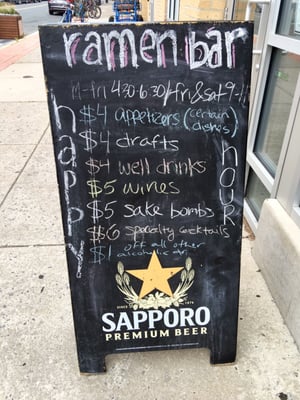 ramen bar
M-fri 4:30-6:30/fri&sat 9-
happy
hour
$4 appetizers (certain dishes)
$4 drafts
$4 well drinks
$5 wines
$5 sake bombs
$6 specialty cocktails
$1 off all other
alcoholic
SAPPORO
PREMIUM BEER